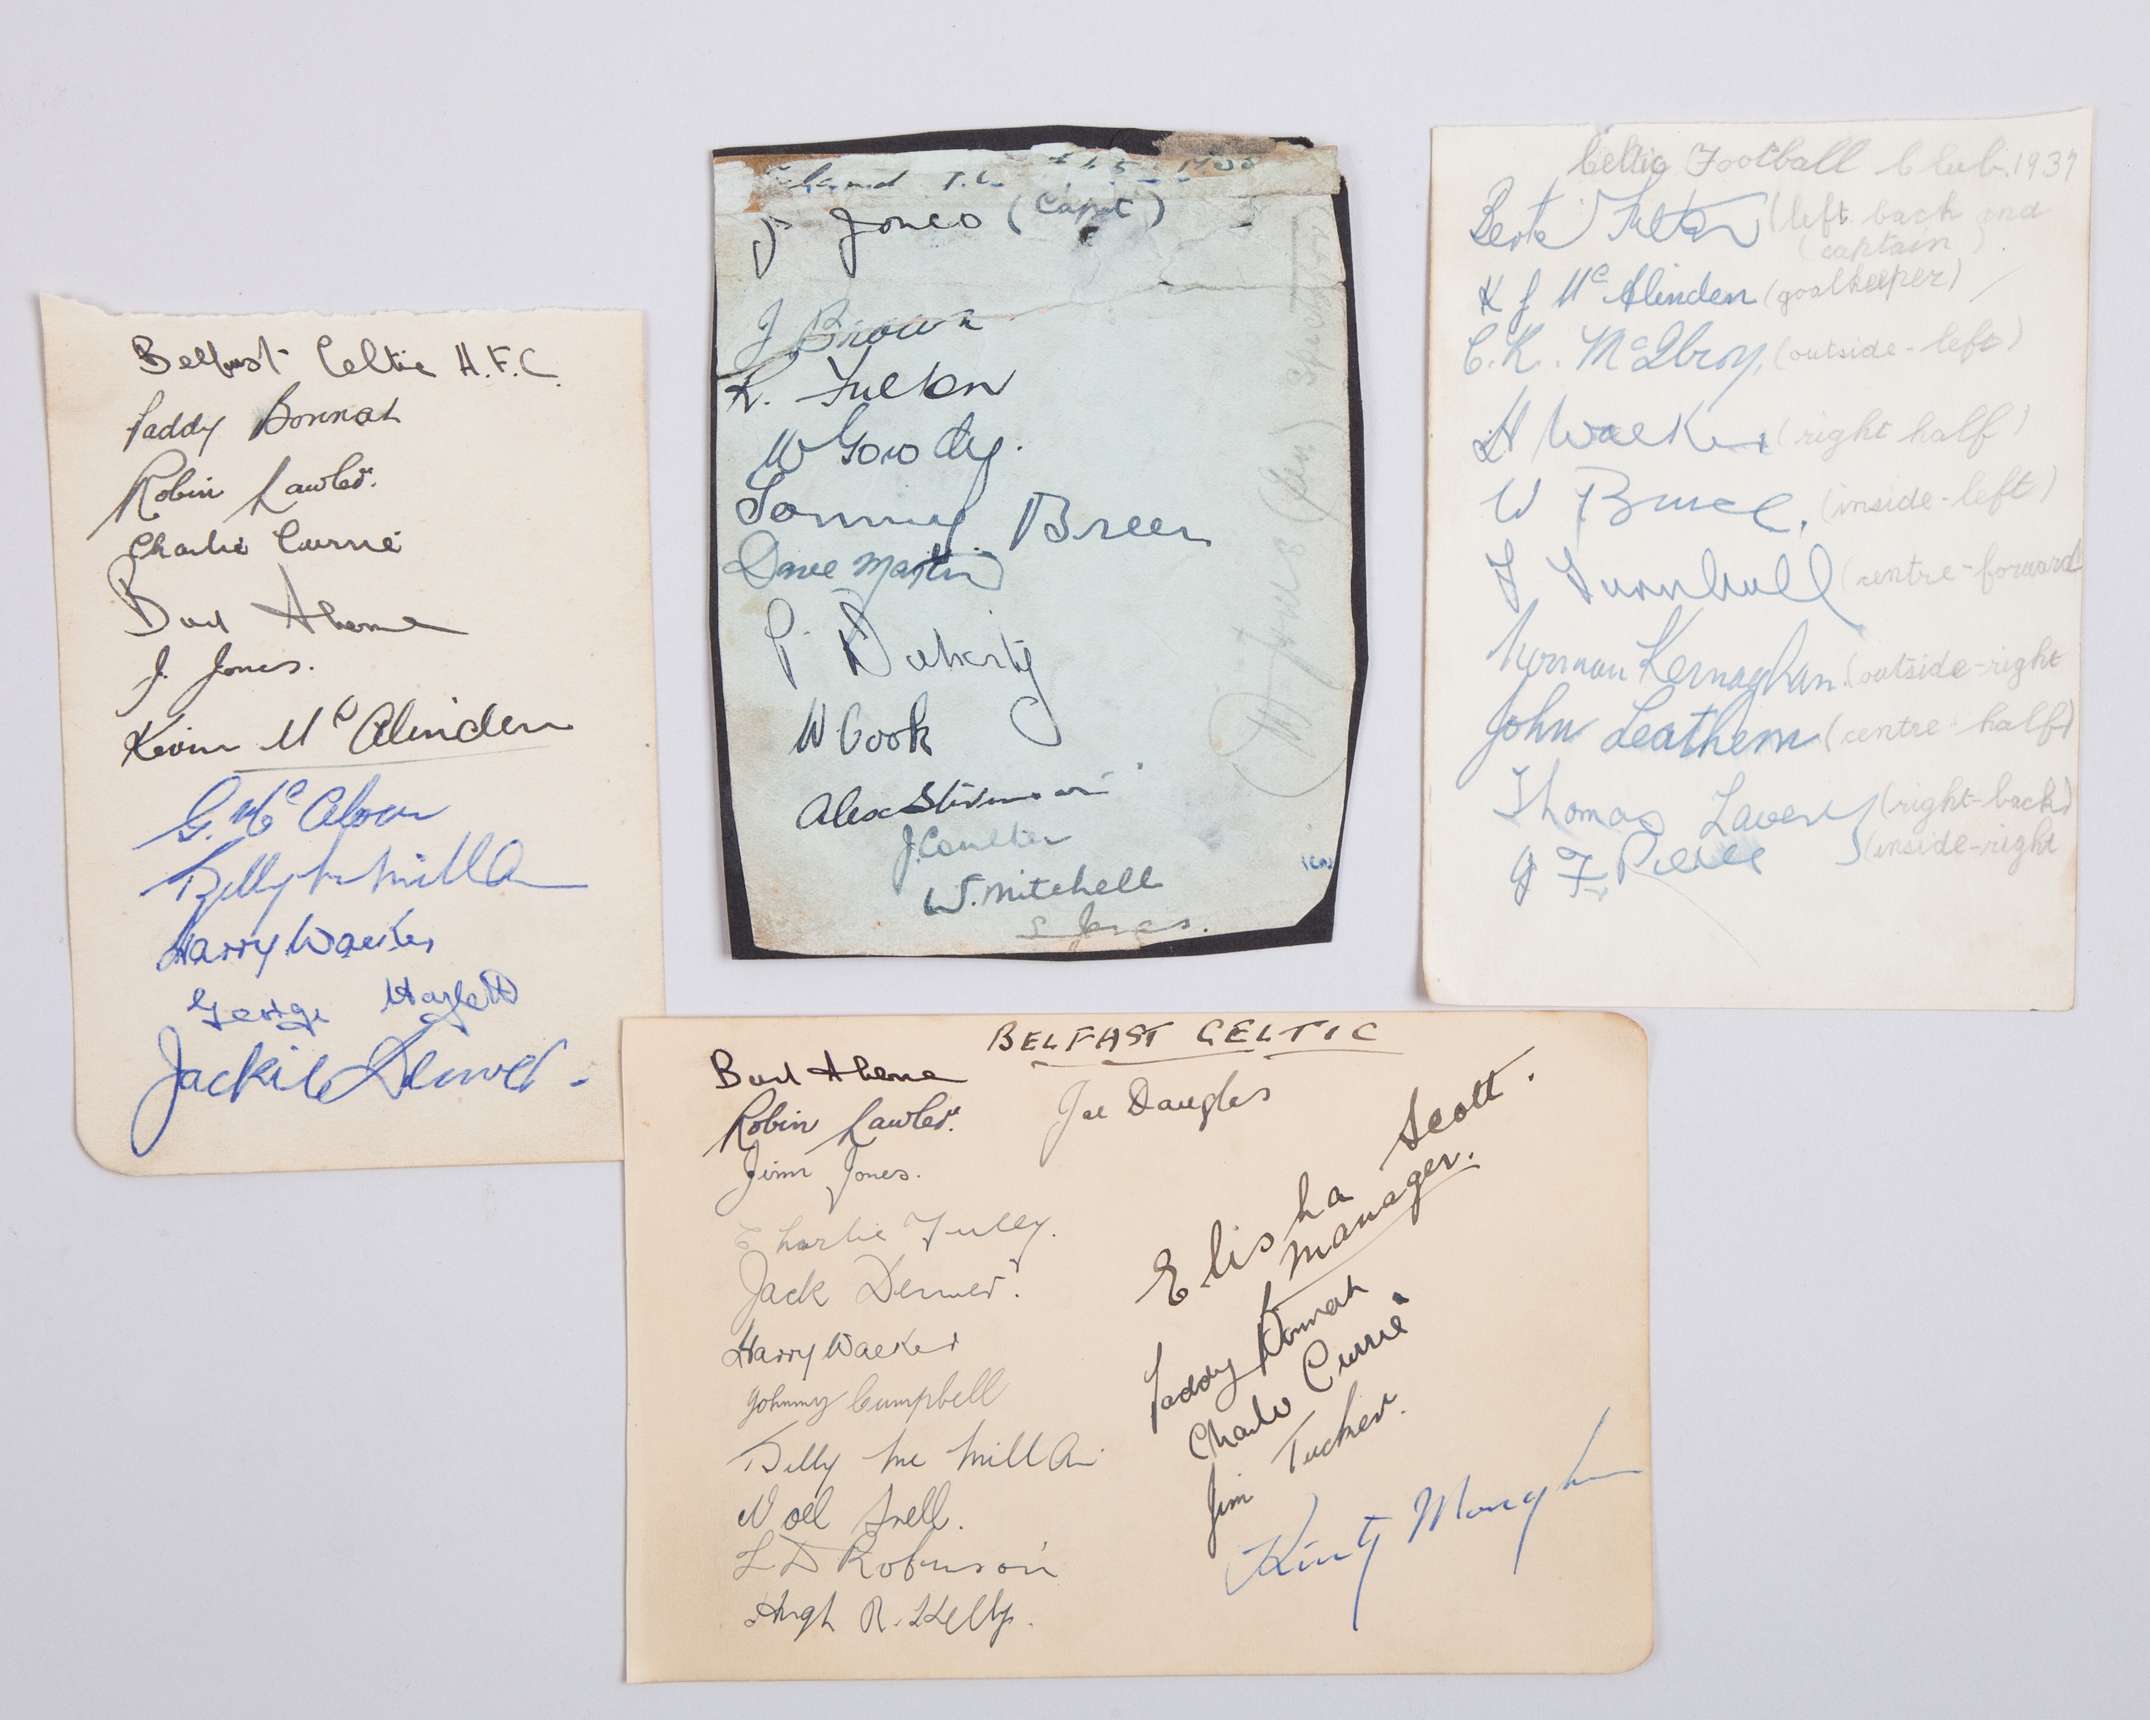 Belfast Celtic A.F.C.
Paddy Bonnar
Robin Lawler.
Charlie Currie
Bud Aherne
J. Jones.
Kevin McAlinden
G. McAloon
Billy McMillan
Harry Walker
George Hazlett
Jackie Denver
Jones (Capt)
J Brown
R. Fulton
W Gorody.
Tommy Breen
Dave Martin
P. Doherty
W Cook
Alex Stevenson
J. Coulter
W. Mitchell
S Jones.
Celtic Football Club. 1937
Bertie Fulton (left back and
captain)
K J McAlinden (goalkeeper)
C.K. McIlroy, (outside-left)
H Walker (right half)
W Bruce, (inside-left)
F Turnbull (centre-forward
Norman Kernaghan (outside-right
John Leathem (centre-half)
Thomas Lavery (right-back)
J F Pierce (inside-right
BELFAST CELTIC
Bud Aherne
Robin Lawler.
Jimmy Jones.
Charlie Tully.
Jack Denver.
Harry Walker
Johnny Campbell
Billy Mc Millan
Noel Snell.
L D Robinson
Hugh R. Kelly.
Joe Douglas
Elisha Scott.
Manager.
Paddy Bonnar
Charlie Currie
Jim Tucker.